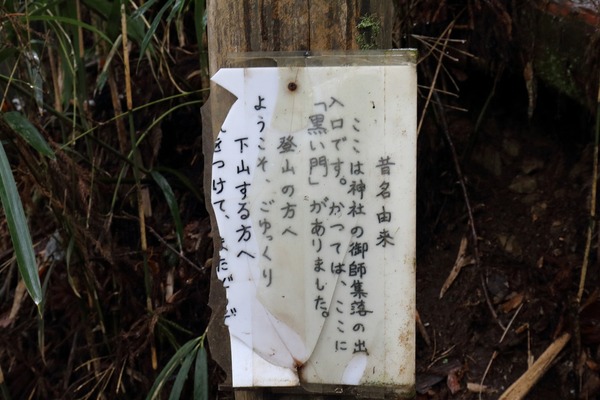 昔名由来
ここは神社の御師集落の出
入口です。かつては、ここに
「黒い門」がありました。
登山の方へ
ようこそ、ごゆっくり
下山する方へ
をつけて、まだ